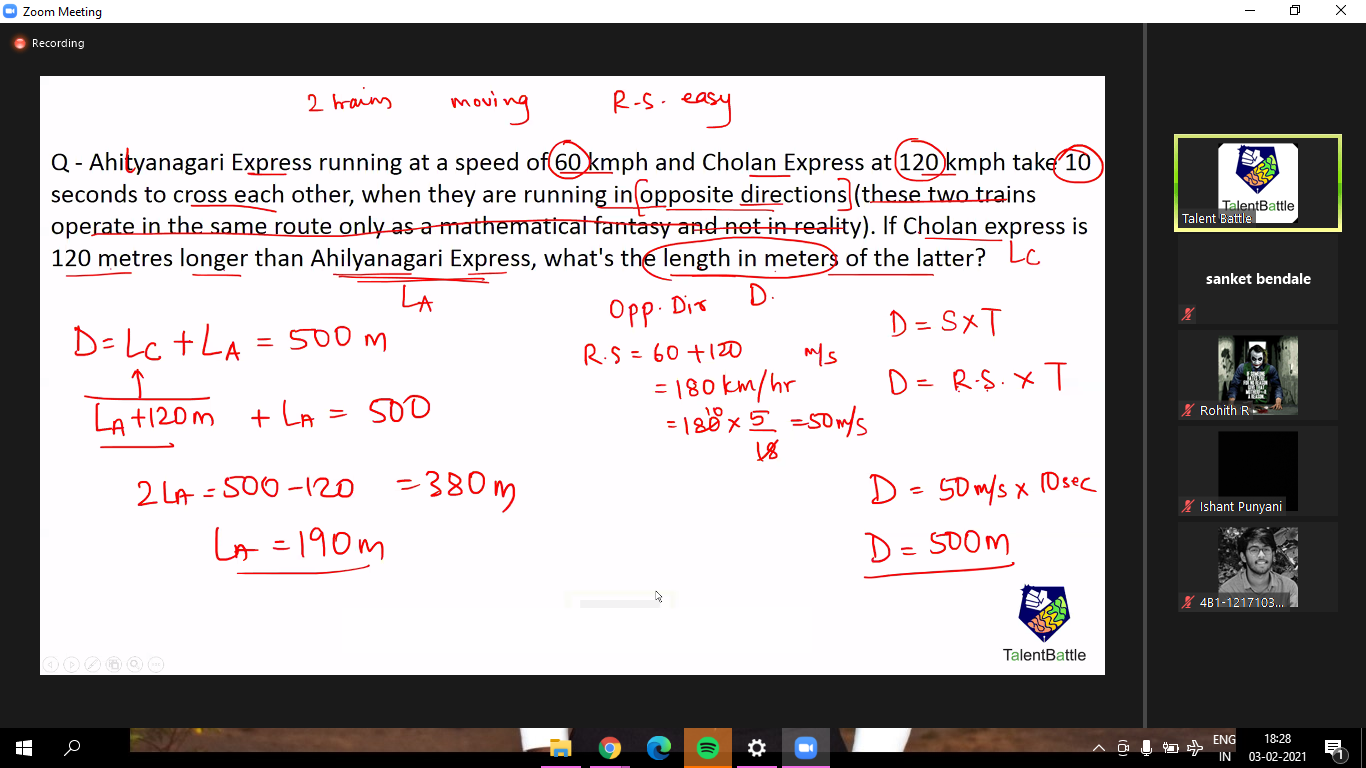 Zoom Meeting
Recording
2 trains moving R.S. easy
Q - Ahityanagari Express running at a speed of 60 kmph and Cholan Express at 120 kmph take 10
seconds to cross each other, when they are running in [opposite directions] (these two trains
operate in the same route only as a mathematical fantasy and not in reality). If Cholan express is
120 metres longer than Ahilyanagari Express, what's the length in meters of the latter? LC
LA
Opp. Dir D.
D = LC + LA = 500 m
R.S = 60 + 120 m/s
= 180 km/hr
= 180 10 × 5/18 = 50 m/s
D = S × T
D = R.S. × T
LA + 120m + LA = 500
2LA = 500 - 120 = 380 m
LA = 190 m
D = 50 m/s × 10 sec
D = 500 m
TalentBattle
TalentBattle
Talent Battle
sanket bendale
Rohith R
Ishant Punyani
4B1-1217103...
ENG
IN
18:28
03-02-2021
1